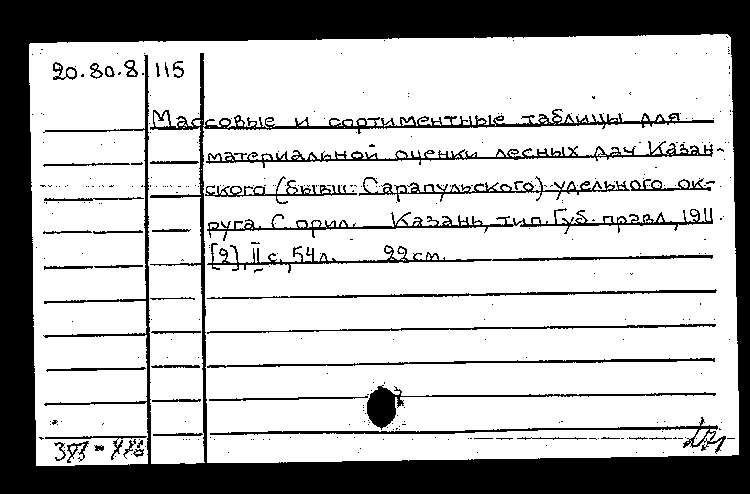 20.80.8. 115
Массовые и сортиментные таблицы для
материальной оценки лесных дач Казан-
ского (бывш. Сарапульского) удельного ок-
руга. С прил. Казань, тип. Губ. правл., 1911.
[2], II с., 54 л. 22 см.